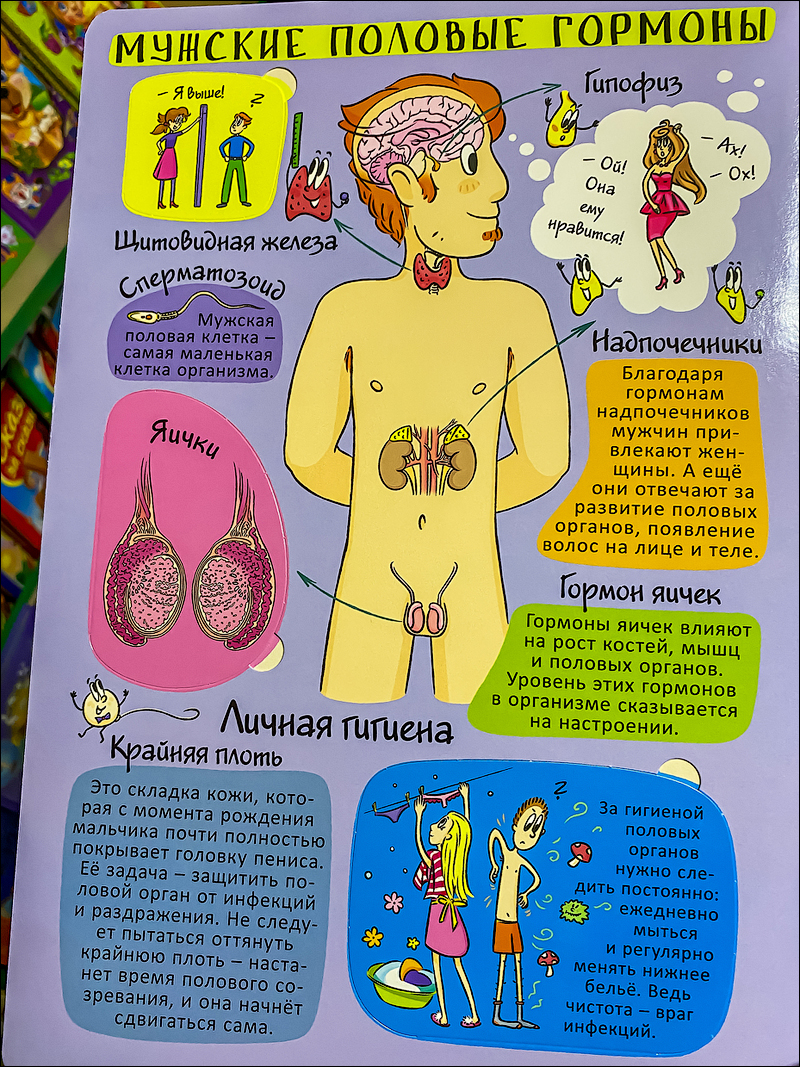 МУЖСКИЕ ПОЛОВЫЕ ГОРМОНЫ
– Я выше!
?
Щитовидная железа
Гипофиз
– Ой!
Она
ему
нравится!
– Ах!
– Ох!
Сперматозоид
Мужская
половая клетка –
самая маленькая
клетка организма.
Надпочечники
Благодаря
гормонам
надпочечников
мужчин при-
влекают жен-
щины. А ещё
они отвечают за
развитие половых
органов, появление
волос на лице и теле.
Яички
Гормон яичек
Гормоны яичек влияют
на рост костей, мышц
и половых органов.
Уровень этих гормонов
в организме сказывается
на настроении.
Личная гигиена
Крайняя плоть
Это складка кожи, кото-
рая с момента рождения
мальчика почти полностью
покрывает головку пениса.
Её задача – защитить по-
ловой орган от инфекций
и раздражения. Не следу-
ет пытаться оттянуть
крайнюю плоть – наста-
нет время полового со-
зревания, и она начнёт
сдвигаться сама.
?
За гигиеной
половых
органов
нужно сле-
дить постоянно:
ежедневно
мыться
и регулярно
менять нижнее
бельё. Ведь
чистота – враг
инфекций.